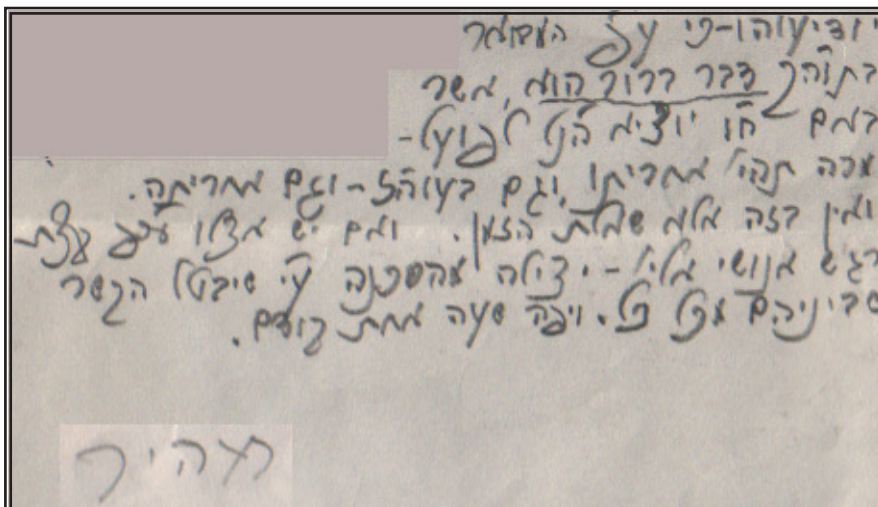 יודיעוהו-כי ע"פ המבואר
בתוה"ק דבר ברור הוא, אשר
באם ח"ו יוציא הנ"ל לפועל-
מרה תהי' אחריתו, וגם בעוה"ז - וגם אחריתה.
ואין בזה אלא שאלת הזמן. ואם יש אצלו עכ"פ קצת
רגש אנושי אלי' - יצילה מהסכנה ע"י שיבטל הקשר
שביניהם מכל וכל. ויפה שעה אחת קודם.
מהיר